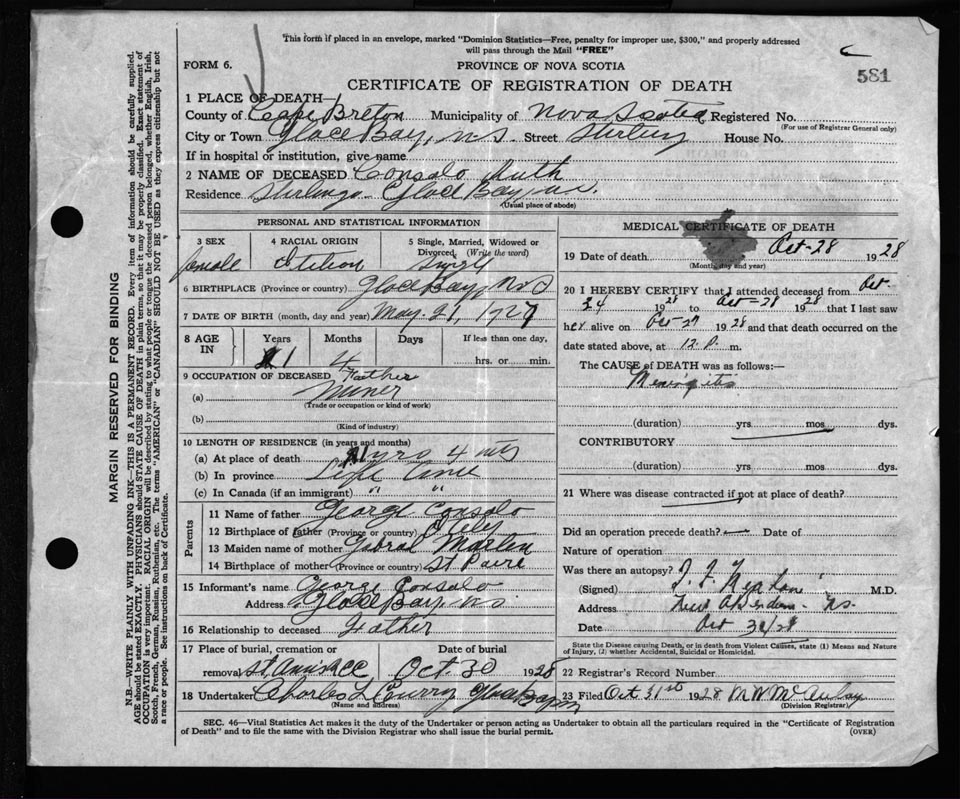 This form if placed in an envelope, marked "Dominion Statistics—Free, penalty for improper use, $300," and properly addressed
will pass through the Mail "FREE"
FORM 6.
PROVINCE OF NOVA SCOTIA
581
CERTIFICATE OF REGISTRATION OF DEATH
1 PLACE OF DEATH—
County of Cape Breton Municipality of Nova Scotia Registered No.
(For use of Registrar General only)
City or Town Glace Bay, N.S. Street Sterling House No.
If in hospital or institution, give name
2 NAME OF DECEASED Consalo Ruth
Residence Sterling Glace Bay, N.S.
(Usual place of abode)
PERSONAL AND STATISTICAL INFORMATION
3 SEX 4 RACIAL ORIGIN 5 Single, Married, Widowed or
Divorced (Write the word)
female Itilion Singl
6 BIRTHPLACE (Province or country) Glace Bay, N.S
7 DATE OF BIRTH (month, day and year) May 21, 1927
8 AGE IN Years Months Days If less than one day,
1 4 hrs. or min.
9 OCCUPATION OF DECEASED Father
(a) Miner
(Trade or occupation or kind of work)
(b)
(Kind of industry)
10 LENGTH OF RESIDENCE (in years and months)
(a) At place of death 1 yrs 4 mts
(b) In province Life time
(c) In Canada (if an immigrant) " "
Parents
11 Name of father George Consalo
12 Birthplace of father (Province or country)
13 Maiden name of mother Martin
14 Birthplace of mother (Province or country) St
15 Informant's name George Consalo
Address Glace Bay, N.S.
16 Relationship to deceased Father
17 Place of burial, cremation or Date of burial
removal St. Anns CC Oct 30 1928
18 Undertaker Charles L Curry Glace Bay
(Name and address)
MEDICAL CERTIFICATE OF DEATH
19 Date of death Oct-28 1928
(Month, day and year)
20 I HEREBY CERTIFY that I attended deceased from Oct-
24 1928 to Oct-28 1928 that I last saw
her alive on Oct-27 1928 and that death occurred on the
date stated above, at 12 P. m.
The CAUSE of DEATH was as follows:—
Meningitis
(duration) yrs mos dys.
CONTRIBUTORY
(duration) yrs. mos dys.
21 Where was disease contracted if not at place of death?
Did an operation precede death? — Date of
Nature of operation
Was there an autopsy?
(Signed) M.D.
Address New Aberdeen - N.S.
Date Oct 30/28
State the Disease causing Death, or in death from Violent Causes, state (1) Means and Nature
of Injury, (2) whether Accidental, Suicidal or Homicidal.
22 Registrar's Record Number
23 Filed Oct 31st 1928 M W McAulay
(Division Registrar)
SEC. 46—Vital Statistics Act makes it the duty of the Undertaker or person acting as Undertaker to obtain all the particulars required in the "Certificate of Registration
of Death" and to file the same with the Division Registrar who shall issue the burial permit.
(OVER)
MARGIN RESERVED FOR BINDING
N.B.—WRITE PLAINLY WITH UNFADING INK—THIS IS A PERMANENT RECORD. Every item of information should be carefully supplied.
AGE should be stated EXACTLY. PHYSICIANS should STATE CAUSE OF DEATH in plain terms, so that it may be properly classified. Exact statement of
OCCUPATION is very important. RACIAL ORIGIN will be described by stating to what people or tongue the deceased person belonged, whether English, Irish,
Scotch, French, German, Russian, Ruthenian, etc. The terms "AMERICAN" or "CANADIAN" SHOULD NOT BE USED as they express citizenship but not
a race or people. See instructions on back of Certificate.